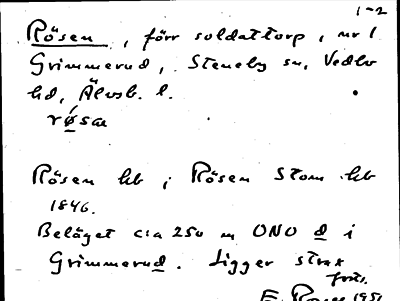 1-2
Rösen, förr soldattorp, nr 1
Grimmerud, Steneby sn, Vedbo
hd, Älvsb. l.
røsa
Rösen hb i Rösen Stom hb
1846.
Beläget c:a 250 m ONO d i
Grimmerud. Ligger strax
forts.
1951